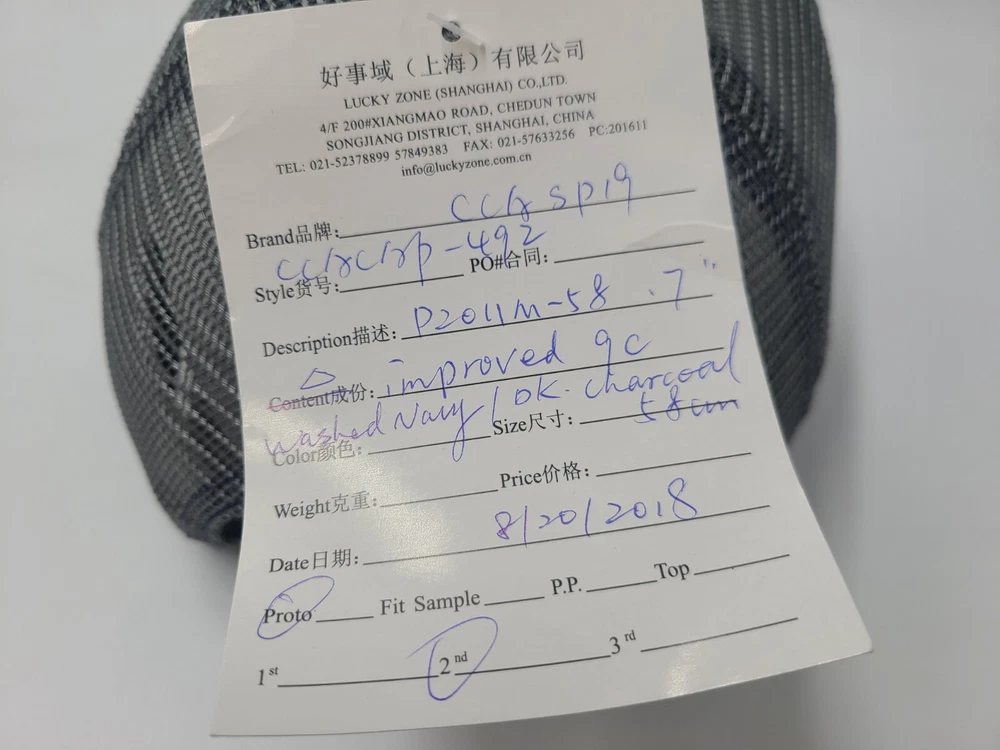 好事域（上海）有限公司
LUCKY ZONE (SHANGHAI) CO.,LTD.
4/F 200#XIANGMAO ROAD, CHEDUN TOWN
SONGJIANG DISTRICT, SHANGHAI, CHINA
TEL: 021-52378899 57849383 FAX: 021-57633256 PC:201611
info@luckyzone.com.cn
Brand品牌: sp19
Style货号: -492 PO#合同:
Description描述: P2011M-58 .7"
Content成份: improved qc
washed Navy / DK. charcoal
Color颜色: Size尺寸: 58cm
Weight克重: Price价格:
Date日期: 8/20/2018
Proto Fit Sample P.P. Top
1st 2nd 3rd